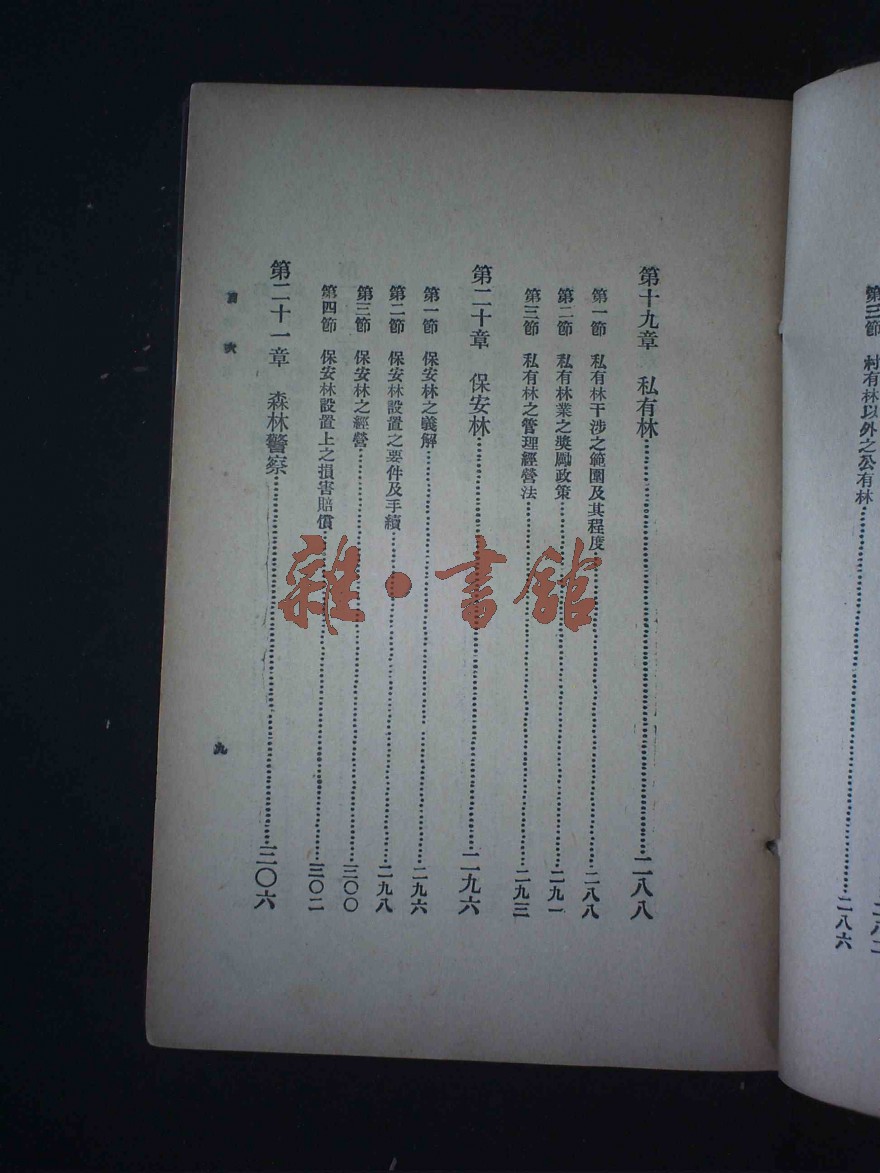 第三節　村有林以外之公有林……二八六
第十九章　私有林……二八八
第一節　私有林干涉之範圍及其程度……二八八
第二節　私有林業之獎勵政策……二九一
第三節　私有林之管理經營法……二九三
第二十章　保安林……二九六
第一節　保安林之義解……二九六
第二節　保安林設置之要件及手續……二九八
第三節　保安林之經營……三〇〇
第四節　保安林設置上之損害賠償……三〇二
第二十一章　森林警察……三〇六
目次
九
雜·書館